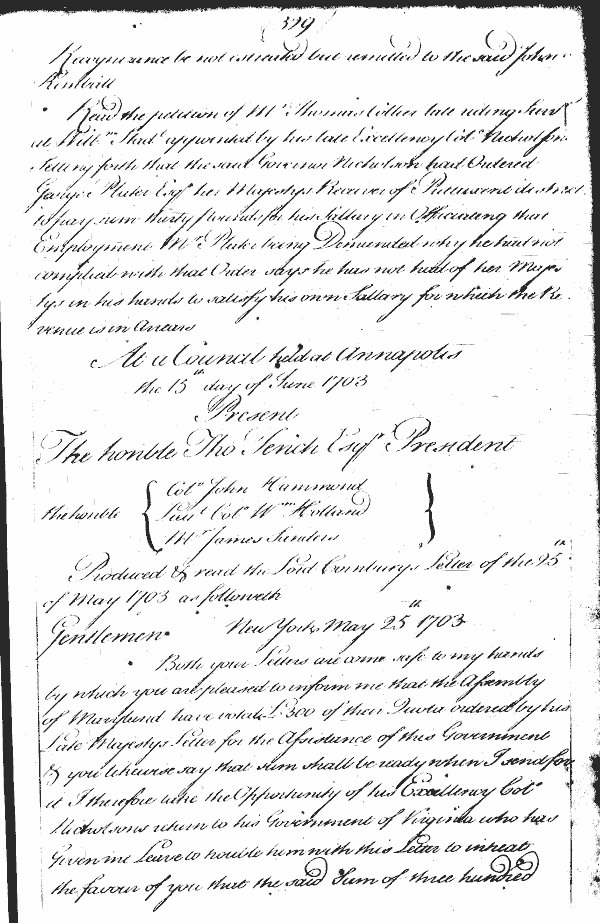 (399)
Recognizance be not estreated but remitted to the said John
Kimball
Read the petition of Mr Thomas Collier late riding Surv
at Willm Stadt appointed by his late Excellency Colo Nicholson
Setting forth that the said Governor Nicholson had Ordered
George Plater Esqr her Majestys Receiver of Patuxent district
to pay him thirty pounds for his Sallary in Officiating that
Employment Mr Plater being Demanded why he had not
complied with that Order says he has not had of her Majes
tys in his hands to satisfy his own Sallary for which the Re
venue is in Arrears
At a Council held at Annapolis
the 15th day of June 1703
Present
The honble Tho Tench Esqr President
the honble { Colo John Hammond
Lieut Colo Wm Holland
Mr James Sanders }
Produced & read the Lord Cornburys Letter of the 25th
of May 1703 as followeth
Gentlemen New York May 25th 1703
Both your Letters are come safe to my hands
by which you are pleased to inform me that the Assembly
of Maryland have voted £300 of their Quota ordered by his
Late Majestys Letter for the Assistance of this Government
& you likewise say that sum shall be ready when I send for
it I therefore take the Opportunity of his Excellency Colo
Nicholsons return to his Government of Virginia who has
Given me Leave to trouble him with this Letter to intreat
the favour of you that the said Sum of three hundred